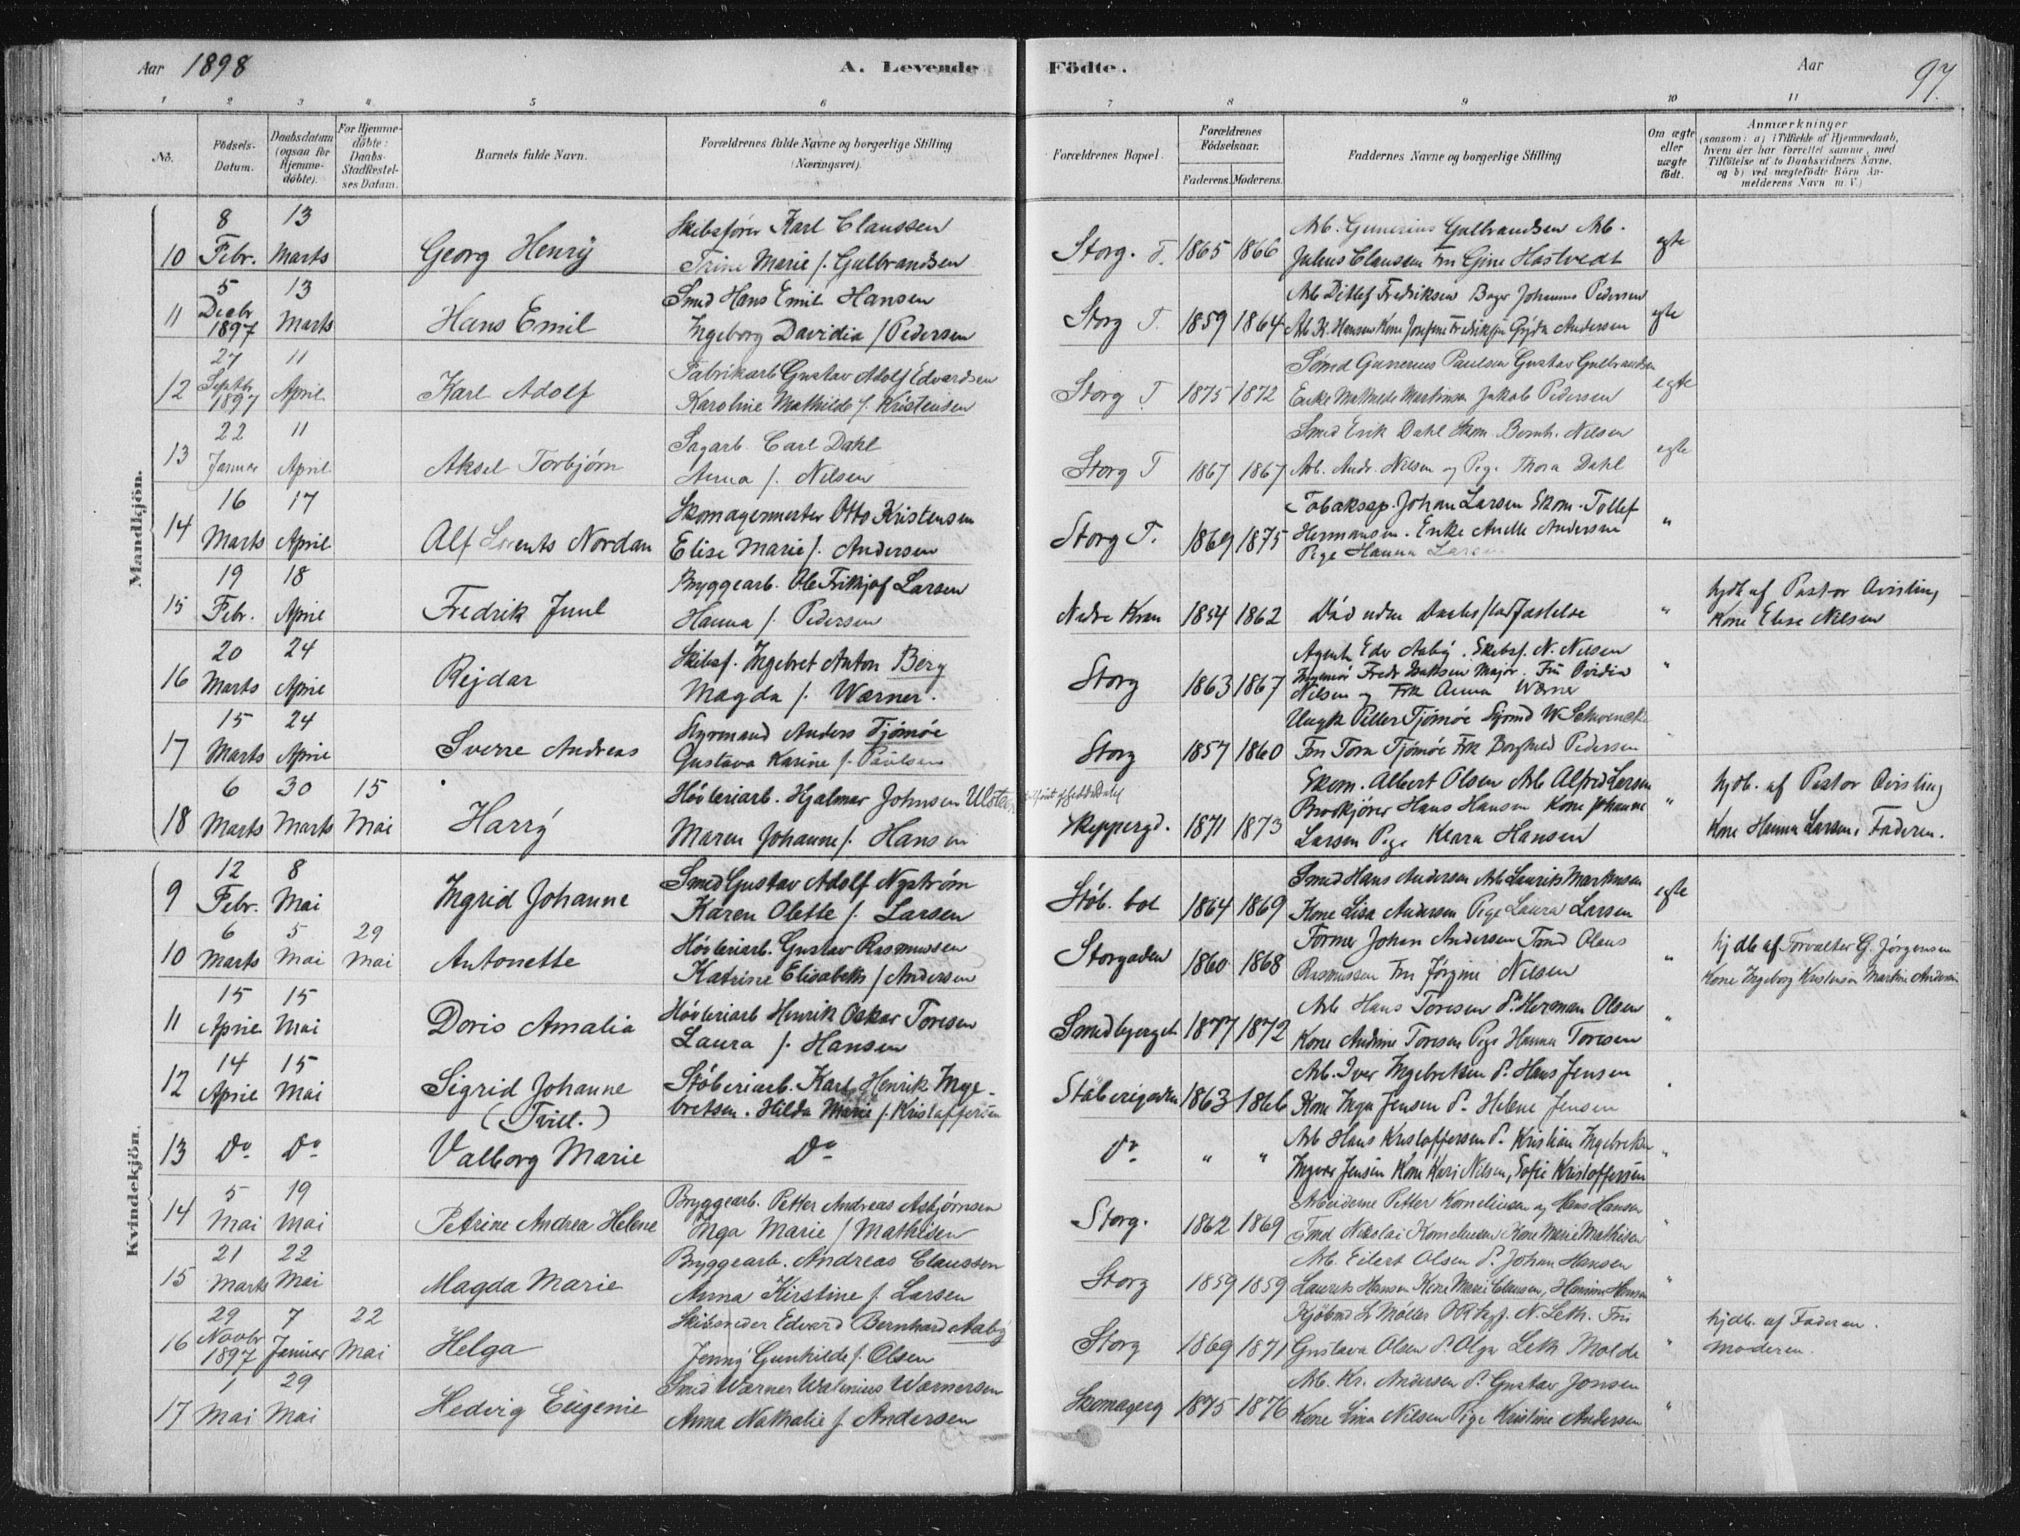 Aar 1898
A. Levende Födte.
Aar
97.
1 2 3 4 5 6 7 8 9 10 11
No. Födsels-Datum. Daabsdatum (ogsaa for Hjemme-döbte). For Hjemme-döbte: Daabs-Stadfæstel-ses Datum. Barnets fulde Navn. Forældrenes fulde Navne og borgerlige Stilling (Næringsvei). Forældrenes Bopæl. Forældrenes Födselsaar. Faderens. Moderens. Faddernes Navne og borgerlige Stilling Om ægte eller uægte födt. Anmærkninger (saasom: a) i Tilfælde af Hjemmedaab, hvem der har forrettet samme, med Tilföielse af to Daabsvidners Navne, og b) ved uægtefödte Börn An-melderens Navn m. V.)
Mandkjön.
8 13 Skibsfører Karl Claussen Arb. Gunerius Gulbrandsen Arb.
10 Febr. Marts Georg Henry Trine Marie f. Gulbrandsen Storg. T. 1865 1866 Julius Clausen Fru Gine Hastvedt egte
5 13 Smed Hans Emil Hansen Arb Ditlef Fredriksen Bager Johannes Pedersen
11 Decbr 1897 Marts Hans Emil Ingeborg Davidia f Pedersen Storg T. 1859 1864 Arb K. Hansen Kone Josefine Fredriksen Gyda Andersen egte
27 11 Fabrikarb Gustav Adolf Edvardsen Smed Gunerius Paulsen Gustav Gulbrandsen
12 Septbr 1897 April Karl Adolf Karoline Mathilde f. Kristensen Storg T 1875 1872 Enke Mathilde Martinsen Jakob Pedersen egte
22 11 Sagarb. Carl Dahl Smed Erik Dahl Skom. Bernh. Nilsen
13 Januar April Aksel Torbjørn Anna f. Nilsen Storg T 1867 1867 Arb. Andr. Nilsen og Pige Thora Dahl egte
16 17 Skomagermester Otto Kristensen Tobakssp. Johan Larsen Skom. Tollef
14 Marts April Alf Lorents Nordan Elise Marie f. Andersen Storg T. 1869 1875 Hermansen. Enke Anelle Andersen "
Pige Hanna Larsen
19 18 Bryggearb. Ole Frithjof Larsen hjdb af Pastor Qvisling
15 Febr. April Fredrik Juul Hanna f. Pedersen Nedre Kran 1854 1862 Død uden Daabsstadfæstelse " Kone Elise Nilsen
20 24 Skibsf. Ingebret Anton Berg Agent Eder Aaby. Skibsf. N. Nilsen
16 Marts April Rejdar Magda f. Wærner. Storg 1863 1867 Fredr Isaksen Major. Fru Ovidia "
Nilsen og Frk Anna Wærner
15 24 Styrmand Anders Tjømøe Ungk Petter Tjømøe
17 Marts April Sverre Andreas Gustava Karine f. Paulsen Storg 1857 1860 Fru Tora Tjømøe Frk Borghild Pedersen
6 30 15 Høvleriarb. Hjalmar Johnsen Ulstein Skom. Albert Olsen Arb Alfred Larsen hjdb. af Pastor Qvisling
18 Marts Marts Mai Harry Maren Johanne f. Hansen Skipperg. 1871 1873 Brødkjører Hans Hansen Kone Johanne " Kone Hanna Larsen, Faderen.
Larsen Pige Klara Hansen
Kvindekjön.
12 8 Smed Gustav Adolf Nystrøm Smed Hans Andersen Arb Laurits Markusen
9 Febr. Mai Ingrid Johanne Karen Olette f. Larsen Støb. bol 1864 1869 Kone Lisa Andersen Pige Laura Larsen egte
6 5 29 Høvleriarb. Gustav Rasmussen Former Johan Andersen Tmd Olaus hjdb af Forvalter G. Jørgensen
10 Marts Mai Mai Antonette Katrine Elisabeth f Andersen Storgaden 1860 1868 Rasmussen Fru Jørgine Nilsen " Kone Ingeborg Kristensen Martine Andersen
15 15 Høvleriarb Henrik Oskar Toresen Arb Hans Toresen do Herman Olsen
11 April Mai Doris Amalia Laura f. Hansen Smedbjerget 1877 1872 Kone Andrine Toresen Pige Hanna Toresen "
14 15 Støberiarb. Karl Henrik Inge- Arb. Iver Ingebretsen do Hans Jensen
12 April Mai Sigrid Johanne (Tvill.) bretsen. Hilda Marie f. Kristoffersen Støberigaden 1863 1866 Kone Inga Jensen do Helene Jensen "
13 do do Valborg Marie do do " " Arb Hans Kristoffersen do Kristian Ingebretsen "
Ingvar Jensen Kone Kari Nilsen, Sofie Kristoffersen
5 19 Bryggearb. Petter Andreas Asbjørnsen Arbeiderne Petter Kornelinsen og Hans Hansen
14 Mai Mai Petrine Andrea Helene Inga Marie f Mathisen Storg. 1862 1869 Tmd Nikolai Korneliusen Kone Marie Mathisen "
21 22 Bryggearb. Andreas Claussen Arb. Eilert Olsen do Johan Hansen
15 Marts Mai Magda Marie Anna Kirstine f. Larsen Storg 1859 1859 Laurits Hansen Kone Marie Clausen, Hanna Hansen "
29 7 22 Skibsreder Edvard Bernhard Aaby Kjøbmd L. Møller N. Leth. Fru hjdb. af Faderen.
16 Novbr 1897 Januar Mai Helga Jenny Gunhilde f. Olsen Storg 1869 1871 Gustava Olsen do Olga Leth Molde " Moderen.
1 29 Smed Wærner Walinius Wærnersen Arb. Kr. Andersen do Gustav Jonsen
17 Mai Mai Hedvig Eugenie Anna Nathalie f. Andersen Skomagerg 1875 1876 Kone Lina Nilsen Pige Kristine Andersen "